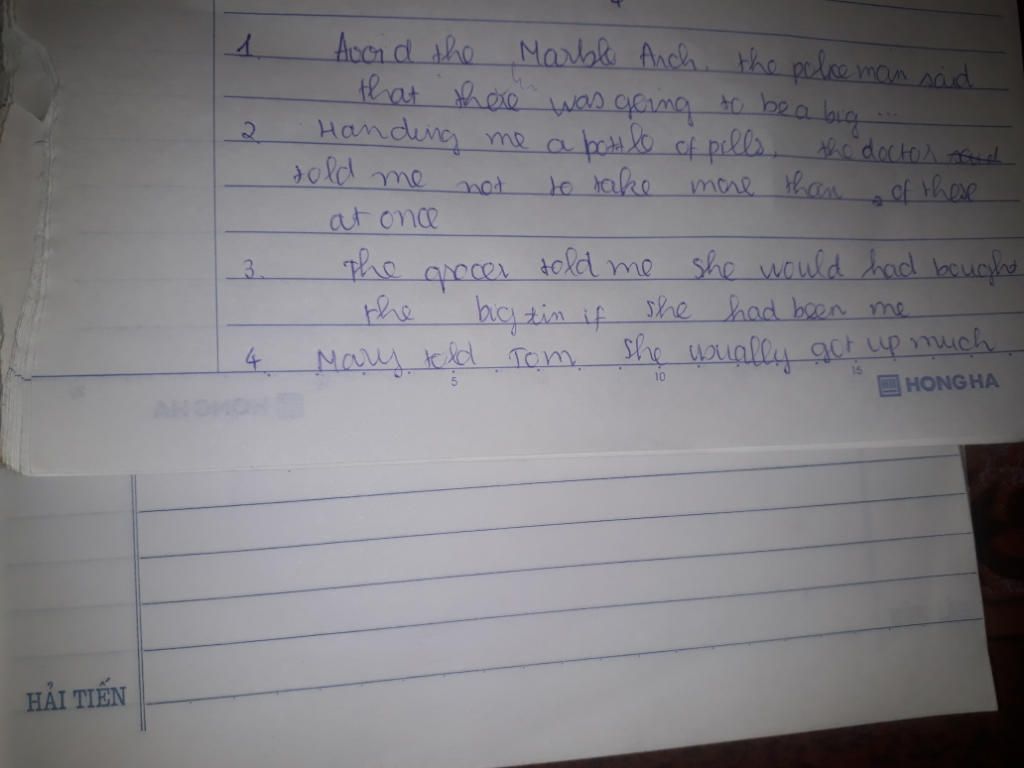 1. Avoid the Marble Arch. the policeman said
that there was going to be a big ...
2 Handing me a bottle of pills, the doctor said
told me not to take more than 2 of these
at once
3. The grocer told me she would had bought
the big tin if she had been me
4. Mary told Tom she usually got up much
5 10 15
HONG HA
HẢI TIẾN